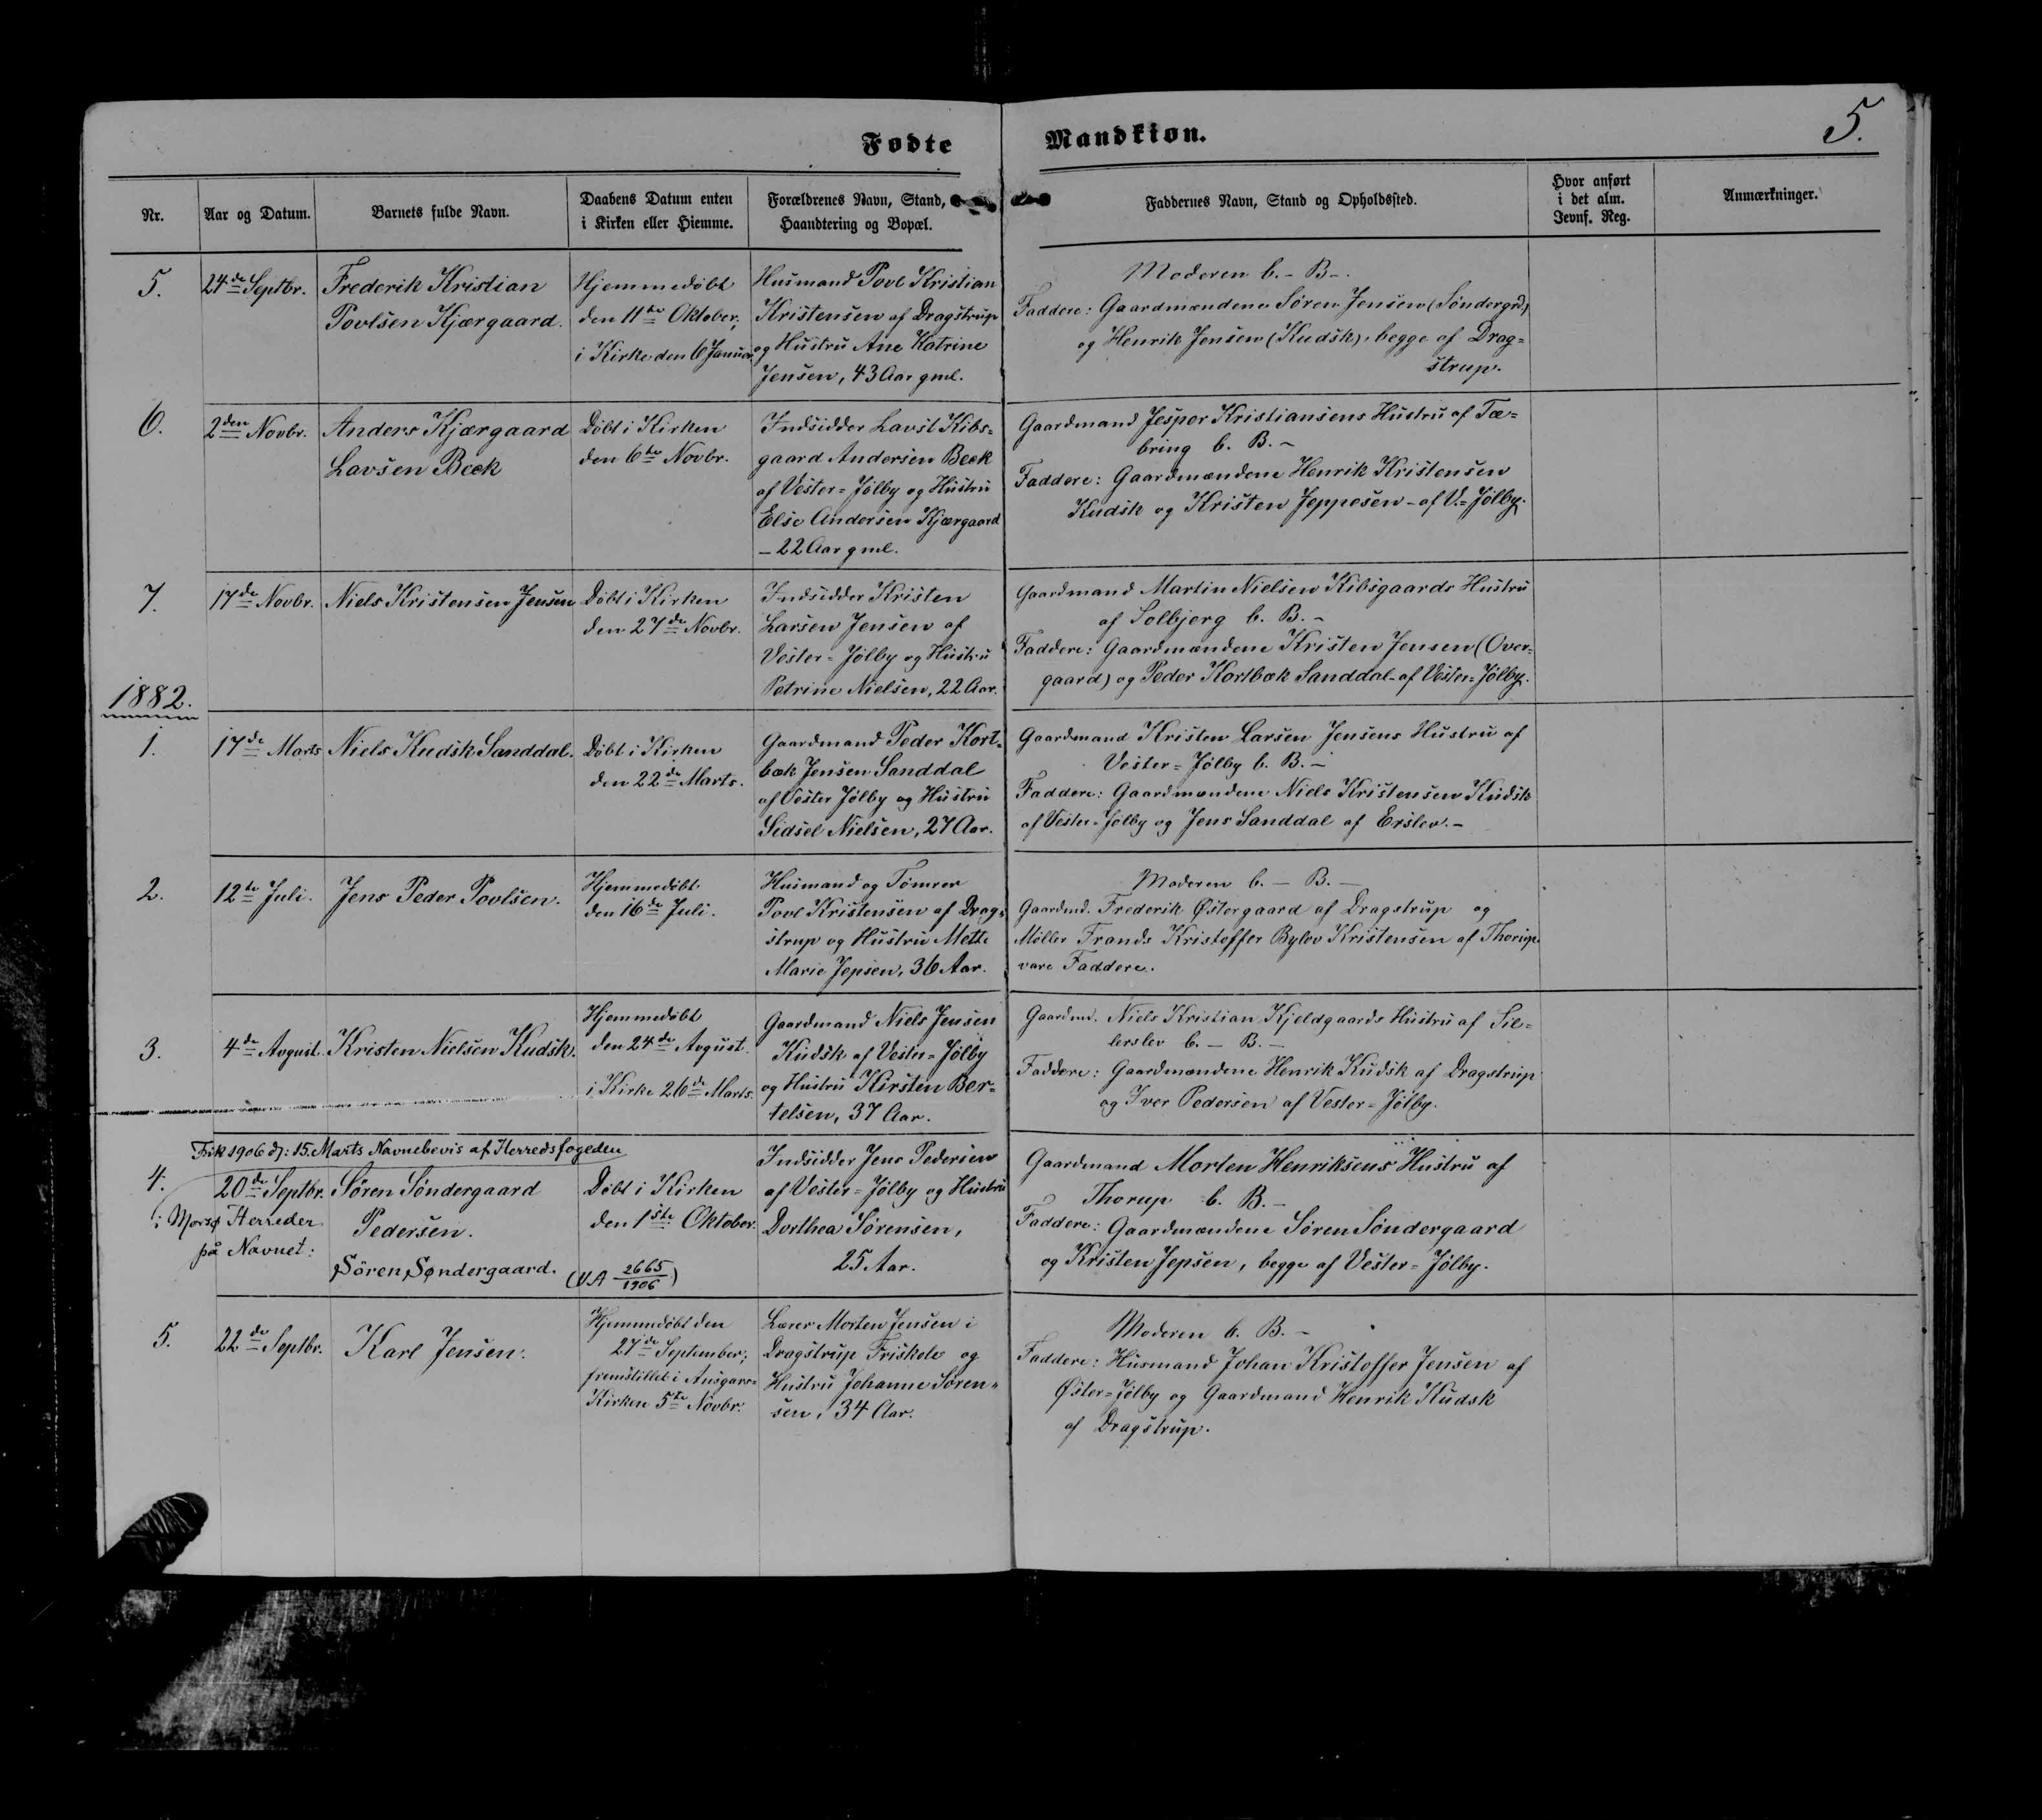 Fødte Mandkiøn.
5.
Nr.
Aar og Datum.
Barnets fulde Navn.
Daabens Datum enten
i Kirken eller Hiemme.
Forældrenes Navn, Stand,
Haandtering og Bopæl.
Faddernes Navn, Stand og Opholdssted.
Hvor anført
i det alm.
Jevnf. Reg.
Anmærkninger.
5.
24de Septbr.
Frederik Kristian
Povlsen Kjærgaard.
Hjemmedøbt
den 11te Oktober;
i Kirke den 6 Januar
Husmand Povl Kristian
Kristensen af Dragstrup
og Hustru Ane Katrine
Jensen, 43 Aar gml.
Moderen b. - B-.
Faddere: Gaardmændene Søren Jensen (Søndergrd)
og Henrik Jensen (Kudsk), begge af Drag=
strup.
6.
2den Novbr.
Anders Kjærgaard
Lavsen Beck
Døbt i Kirken
den 6te Novbr.
Indsidder Lavst Kibs=
gaard Andersen Beck
af Vester=Jølby og Hustru
Else Andersen Kjærgaard
- 22 Aar gml.
Gaardmand Jesper Kristiansens Hustru af Tæ=
bring b. B. -
Faddere: Gaardmændene Henrik Kristensen
Kudsk og Kristen Jeppesen - af V.=Jølby.
7.
17de Novbr.
Niels Kristensen Jensen
Døbt i Kirken
den 27de Novbr.
Indsidder Kristen
Larsen Jensen af
Vester=Jølby og Hustru
Petrine Nielsen, 22 Aar.
Gaardmand Martin Nielsen Kibsgaards Hustru
af Solbjerg b. B. -
Faddere: Gaardmændene Kristen Jensen (Over=
gaard) og Peder Kortbæk Sanddal - af Vester=Jølby.
1882.
1.
17de Marts
Niels Kudsk Sanddal.
Døbt i Kirken
den 22de Marts.
Gaardmand Peder Kort=
bæk Jensen Sanddal
af Vester Jølby og Hustru
Sidsel Nielsen, 27 Aar.
Gaardmand Kristen Larsen Jensens Hustru af
Vester=Jølby b. B. -
Faddere: Gaardmændene Niels Kristensen Kudsk
af Vester=Jølby og Jens Sanddal af Erslev. -
2.
12te Juli.
Jens Peder Povlsen.
Hjemmedøbt
den 16de Juli.
Husmand og Tømrer
Povl Kristensen af Drag=
strup og Hustru Mette
Marie Jepsen, 36 Aar.
Moderen b. - B. -
Gaardmd. Frederik Østergaard af Dragstrup og
Møller Frands Kristoffer Bylov Kristensen af Thorup
vare Faddere.
3.
4de Avgust.
Kristen Nielsen Kudsk.
Hjemmedøbt
den 24de Avgust.
i Kirke 26de Marts.
Gaardmand Niels Jensen
Kudsk af Vester=Jølby
og Hustru Kirsten Ber=
telsen, 37 Aar.
Gaardmd. Niels Kristian Kjeldgaards Hustru af Sil=
lerslev b. - B. -
Faddere: Gaardmændene Henrik Kudsk af Dragstrup
og Iver Pedersen af Vester=Jølby.
Fik 1906 d: 15. Marts Navnebevis af Herredsfogden
4.
20de Septbr.
i Morsø Herreder
på Navnet:
Søren Søndergaard
Pedersen.
Sören Søndergaard.
Døbt i Kirken
den 1ste Oktober.
(VA 2665/1906)
Indsidder Jens Pedersen
af Vester=Jølby og Hustru
Dorthea Sørensen,
25 Aar.
Gaardmand Morten Henriksens Hustru af
Thorup b. B. -
Faddere: Gaardmændene Søren Søndergaard
og Kristen Jepsen, begge af Vester=Jølby.
5.
22de Septbr.
Karl Jensen.
Hjemmedøbt den
27de September;
fremstillet i Ansgars=
Kirken 5te Novbr.
Lærer Morten Jensen i
Dragstrup Friskole og
Hustru Johanne Søren=
sen, 34 Aar.
Moderen b. B. -
Faddere: Husmand Johan Kristoffer Jensen af
Øster=Jølby og Gaardmand Henrik Kudsk
af Dragstrup.